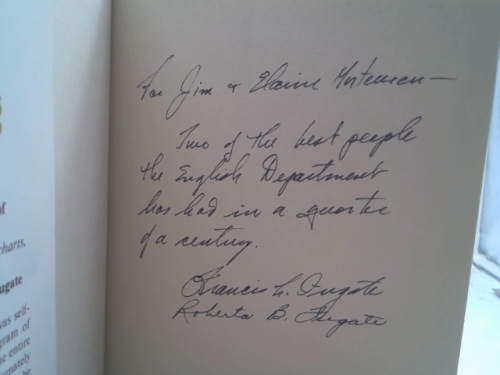 For Jim & Elaine Mortensen —
Two of the best people
the English Department
has had in a quarter
of a century.
Francis L. Fugate
Roberta B. Fugate
of
charts,
ugate
was self-
gram of
he entire
tunately
be